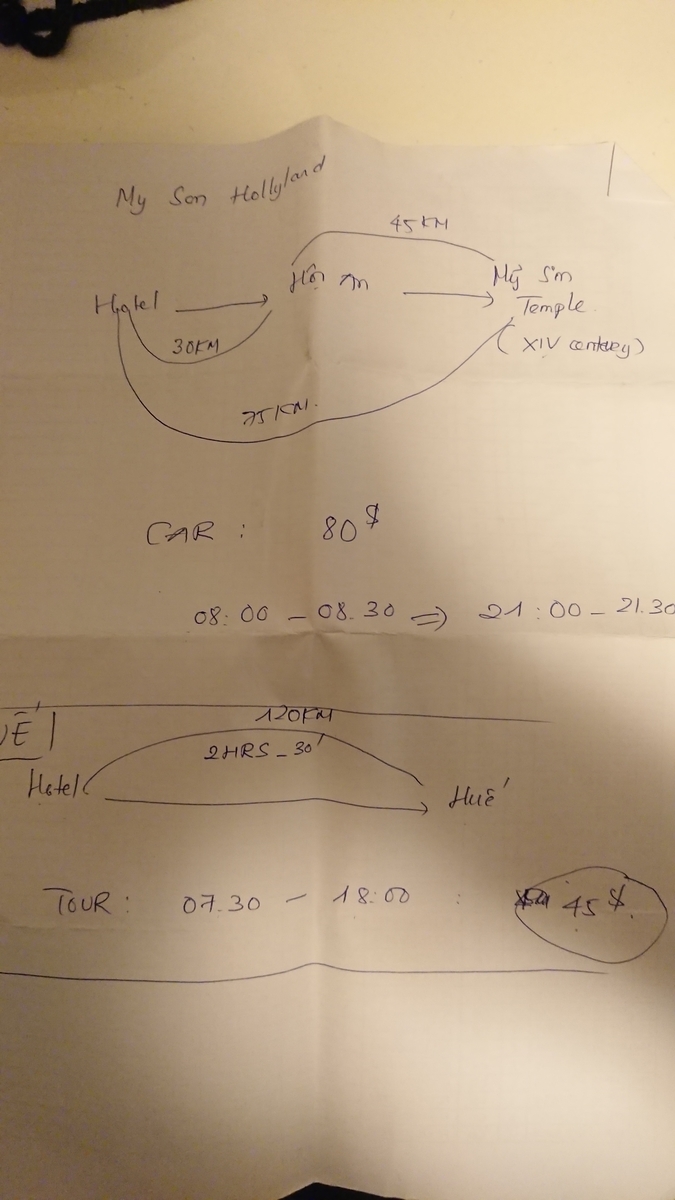 My Son Hollyland
45KM
Hotel Hội An Mỹ Sơn
Temple
30KM (XIV centuey)
75KM.
CAR : 80$
08:00 - 08.30 => 21:00 - 21.30
120KM
UẾ
2HRS - 30'
Hotel Huế
TOUR: 07.30 - 18:00 : 45$.